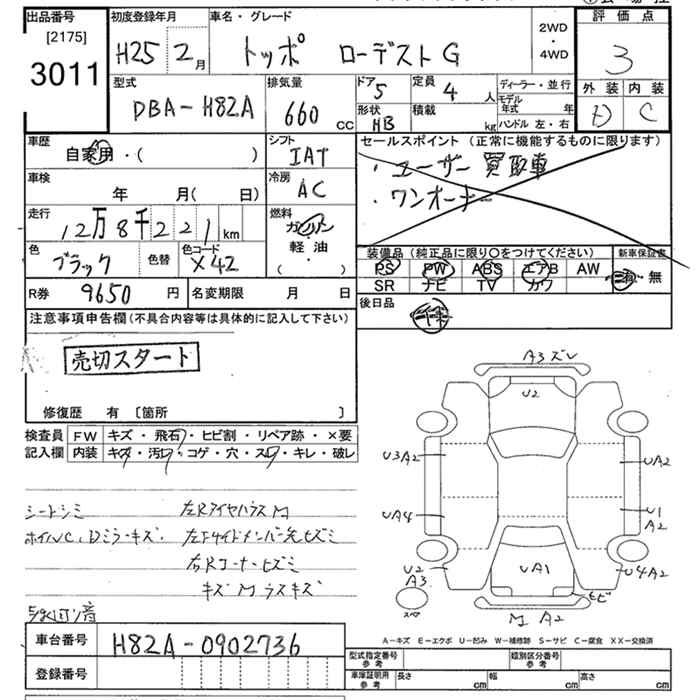 出品番号 初度登録年月 車名・グレード 2WD・4WD 評価点
[2175]
3011 H25 2月 トッポ ローデストG 3
型式 排気量 ドア 定員 ディーラー・並行 外装 内装
DBA-H82A 660cc 5 4人 モデル年式 年 D C
形状 積載 ハンドル 左・右
HB kg
車歴 シフト セールスポイント (正常に機能するものに限ります)
自家用・( ) IAT ・ユーザー買取車
車検 冷房 ・ワンオーナー
年 月( 日) AC
走行 燃料
12万8千221km ガソリン
色 色替 色コード 軽・油
ブラック X42 ( ・ )
装備品 (純正品に限り〇をつけてください) 新車保証書
PS PW ABS エアB AW 有・無
SR ナビ TV カワ
R券 9650円 名変期限 月 日 後日品
注意事項申告欄(不具合内容等は具体的に記入して下さい)
売切スタート
修復歴 有 〔箇所 〕
検査員 FW キズ・飛石・ヒビ割・リペア跡・×要
記入欄 内装 キズ・汚レ・コゲ・穴・スレ・キレ・破レ
シートシミ 左Rタイヤハウス M
ホイルC, Dミラーキズ 左Fサイドメンバー先ヒズミ
右Rコーナーヒズミ
キズMラスキズ
A3ズレ
U2
U3A2 UA2
UA4 U1
A2
U2 UA1 U4A2
A3 ヒビ
スペ M A2
A-キズ E-エクボ U-凹み W-補修跡 S-サビ C-腐食 XX-交換済
車台番号 H82A-0902736
登録番号
型式指定番号 参考 類別区分番号 参考
車庫証明用 参考 長さ cm 幅 cm 高さ cm